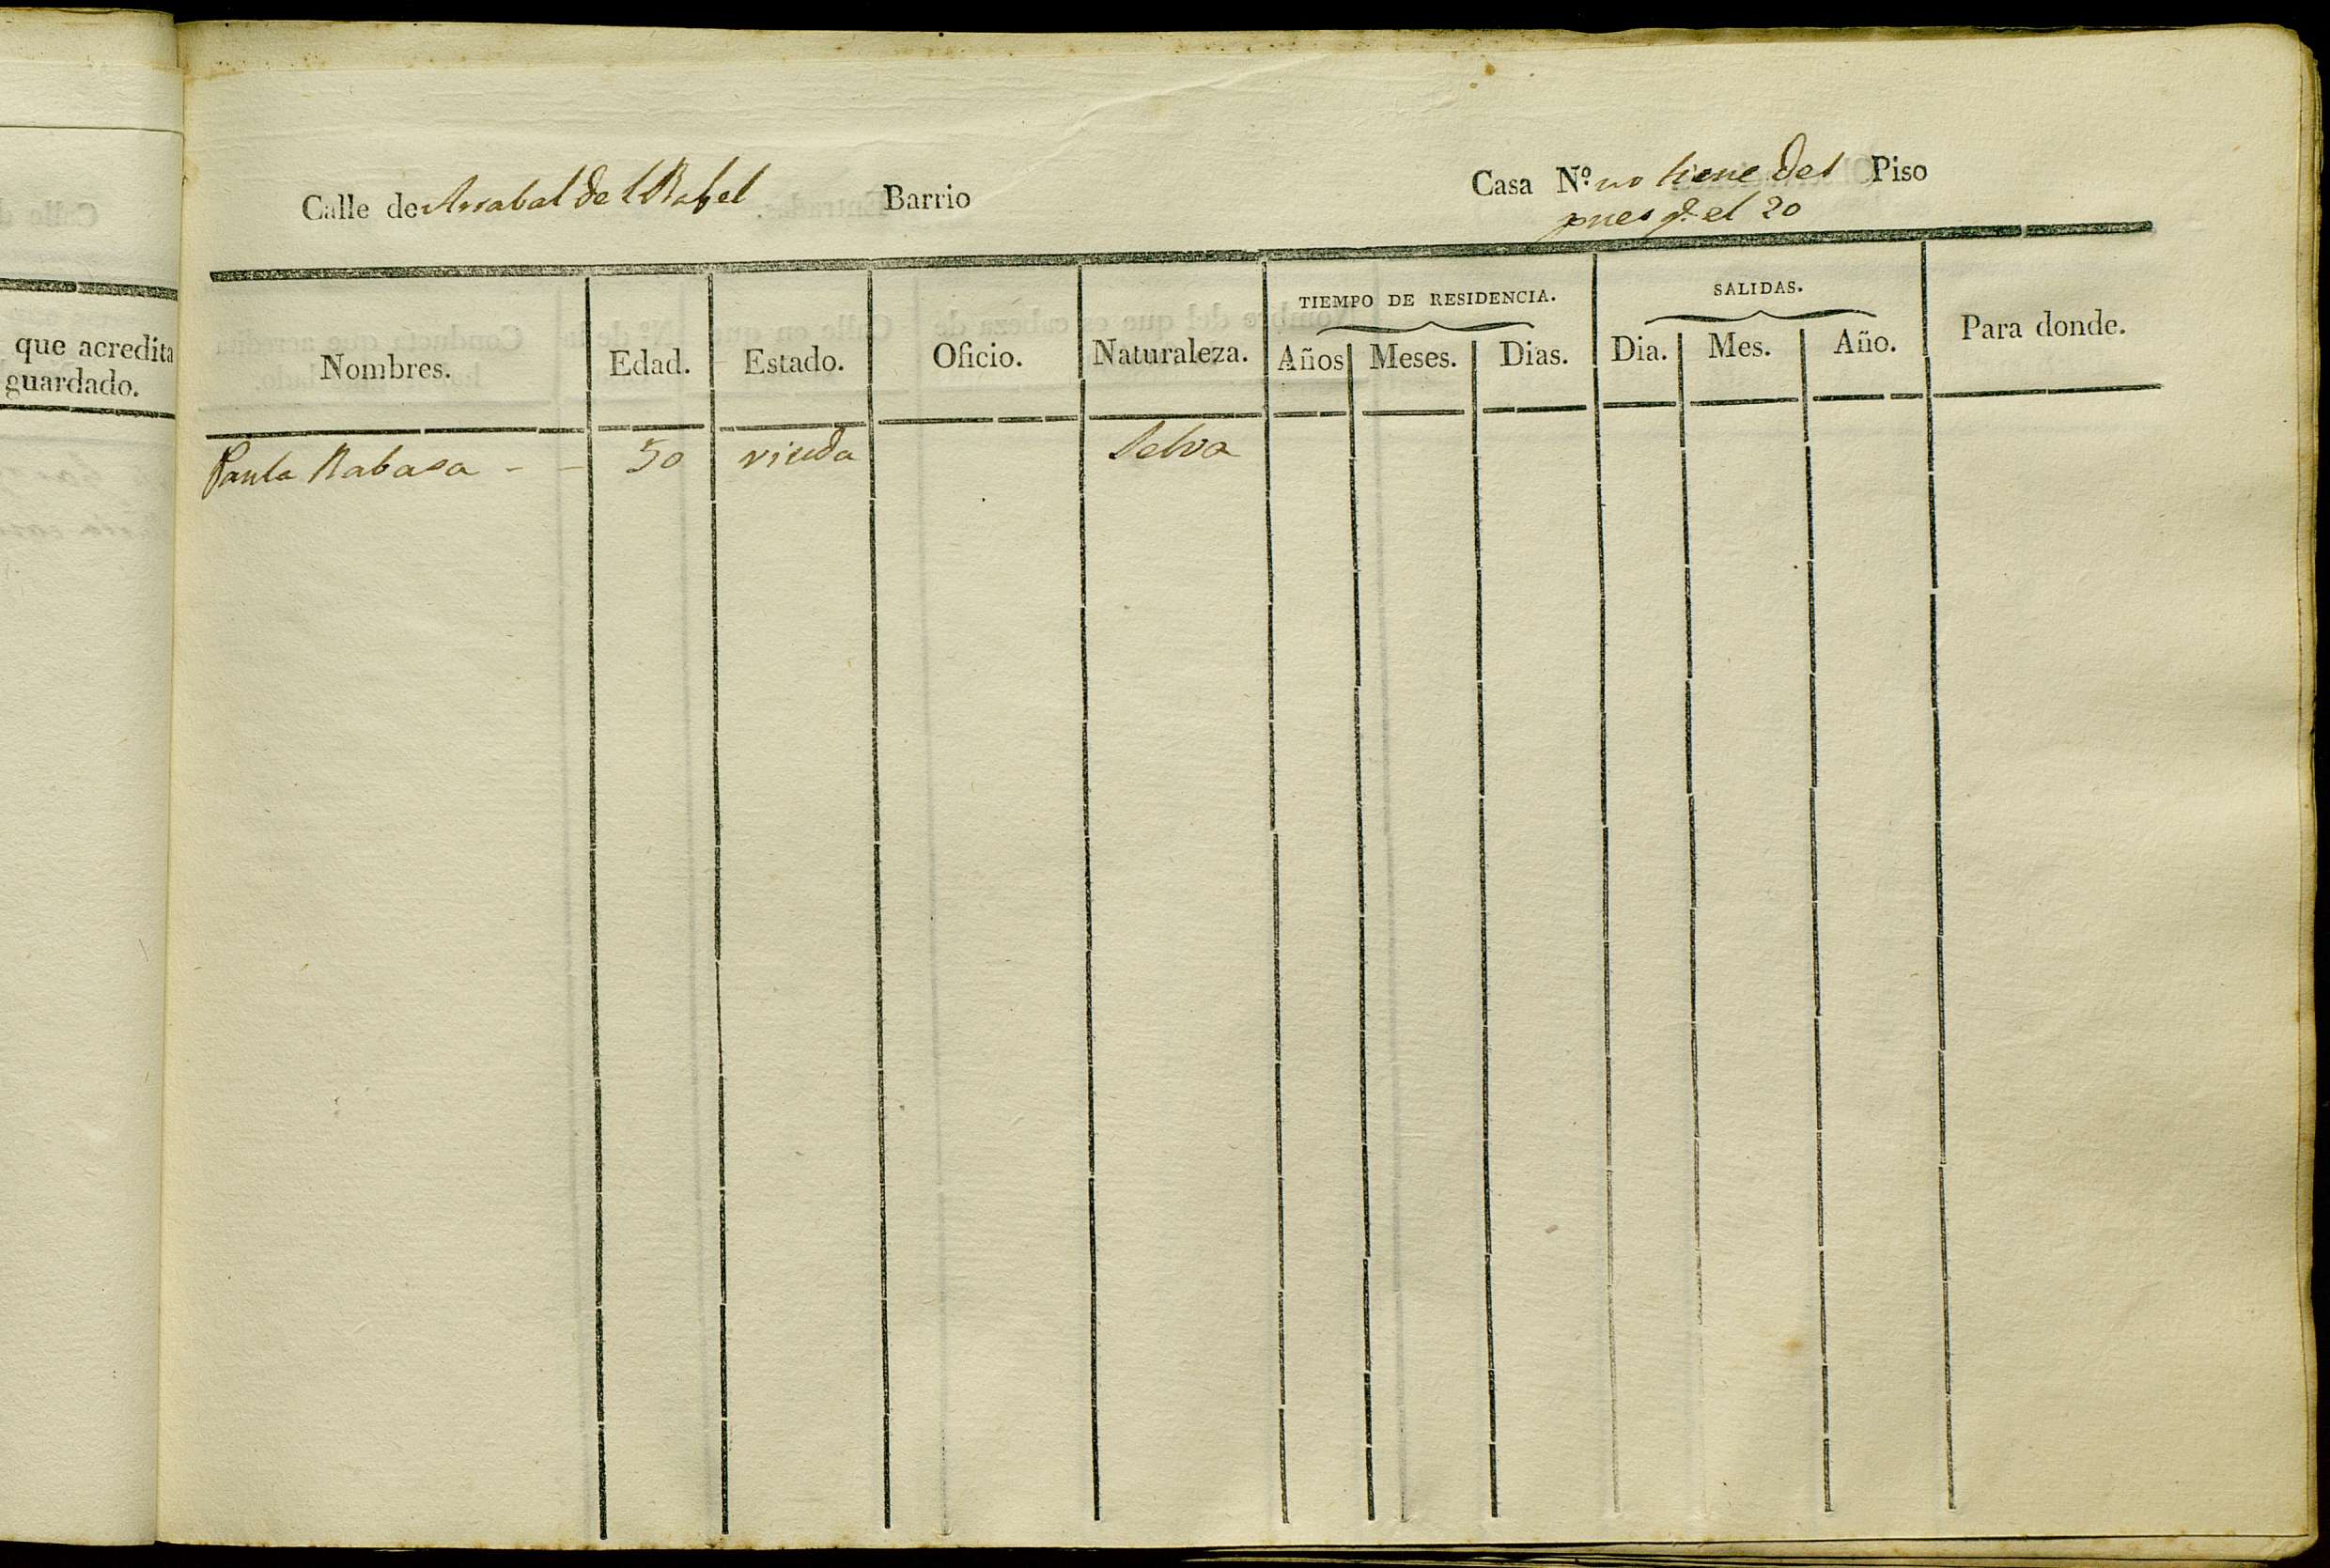 que acredita
guardado.
Calle de Arrabal del Rafel Barrio Casa N.º no tiene Del Piso
pues q.e el 20
TIEMPO DE RESIDENCIA. SALIDAS.
Nombres. Edad. Estado. Oficio. Naturaleza. Años Meses. Dias. Dia. Mes. Año. Para donde.
Paula Rabasa - - 50 viuda Selva